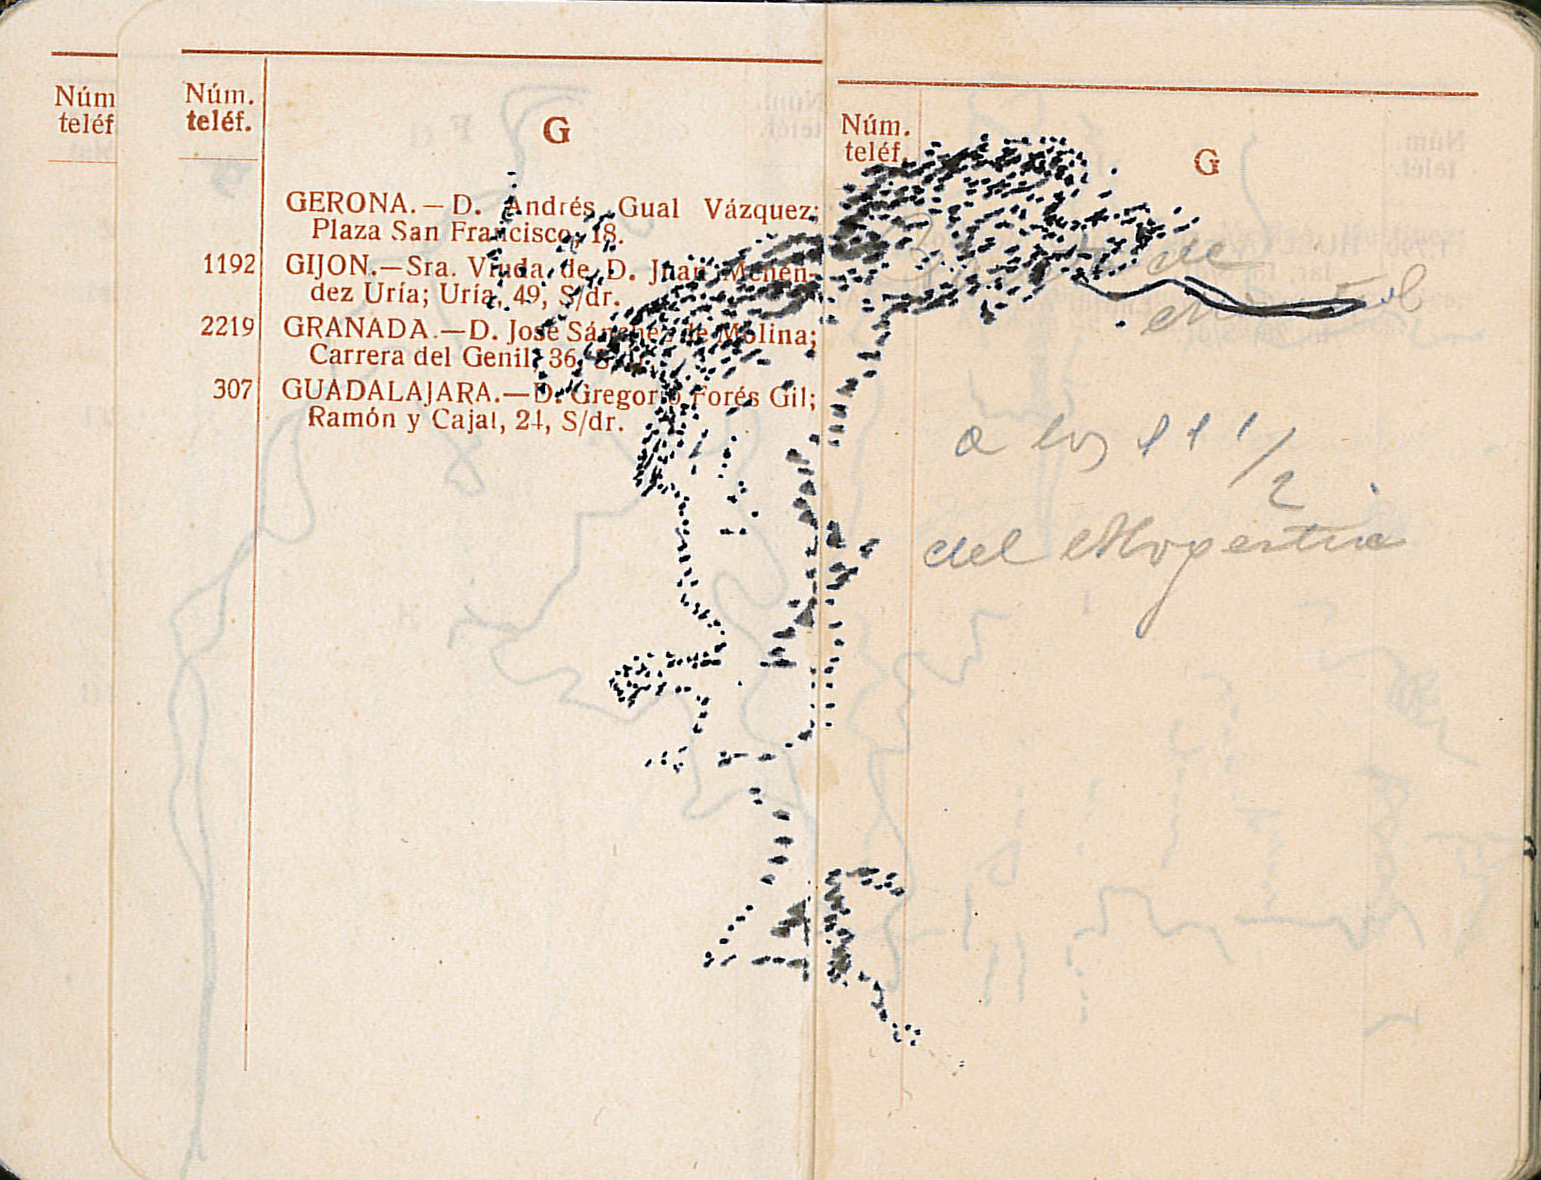 Núm
teléf
Núm.
teléf.
G
GERONA.—D. Andrés Gual Vázquez;
Plaza San Francisco, 18.
1192 GIJON.—Sra. Viuda de D. Juan Menén-
dez Uría; Uría, 49, S/dr.
2219 GRANADA.—D. José Sánchez de Molina;
Carrera del Genil, 36, S/dr.
307 GUADALAJARA.—D. Gregorio Forés Gil;
Ramón y Cajal, 24, S/dr.
Núm.
teléf.
G
de
a las 11 1/2
del